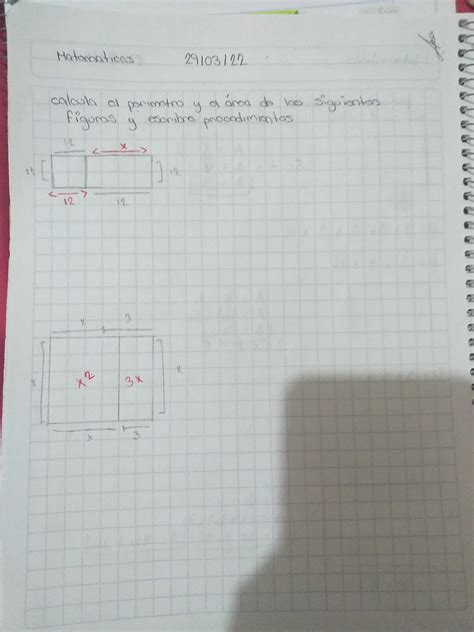 Matematicas 29/03/22
calcula el perimetro y el área de las siguientes
figuras y escribe procedimientos
12 x
12 12
12 12
x 3
x x² 3x x
x 3